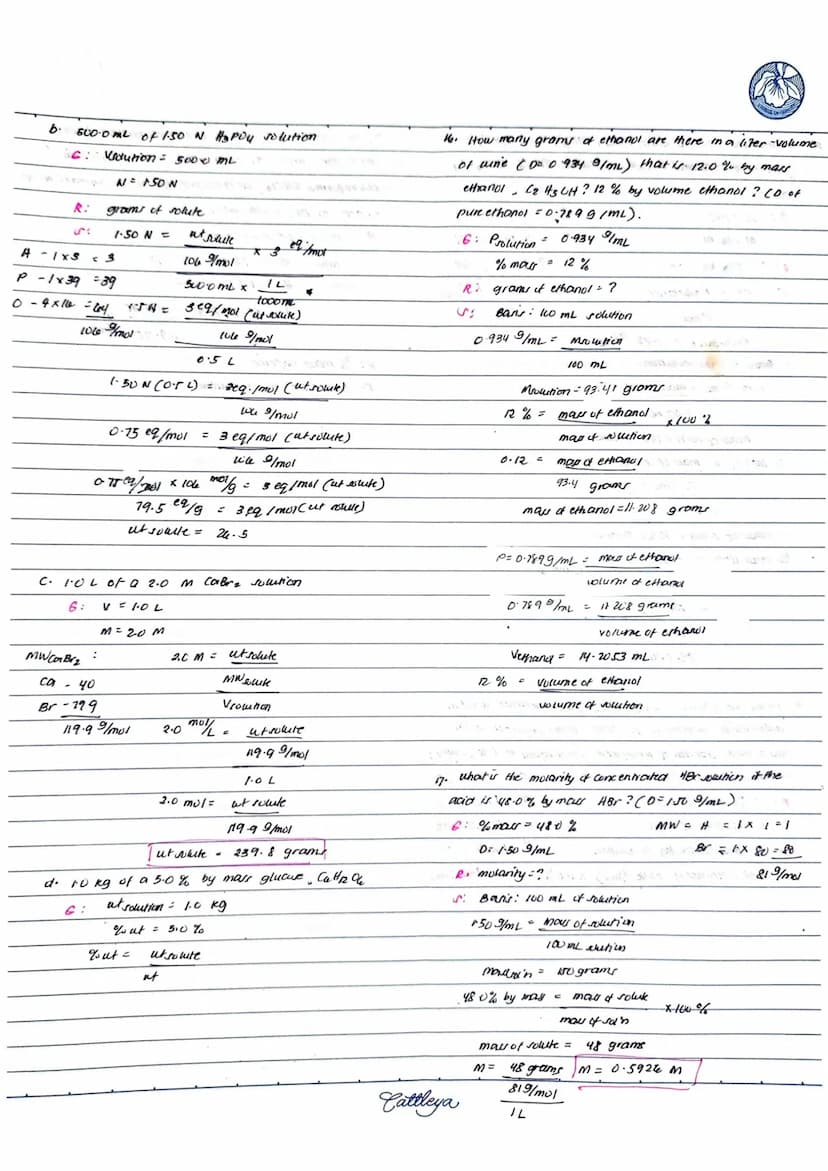 b. 500.0 mL of 1.50 N H3PO4 solution
G: Vsolution = 500.0 mL
N = 1.50 N
R: grams of solute
S: 1.50 N = wt solute
106 g/mol × 3 eq/mol
- 1 x 3 = 3
P - 1x39 = 39
500.0 mL × 1 L
1000 mL
O - 4x16 = 64 1.5 N = 3 eq/mol (wt solute)
106 g/mol 106 g/mol
0.5 L
1.50 N (0.5 L) = 3 eq./mol (wt solute)
106 g/mol
0.75 eq/mol = 3 eq/mol (wt solute)
106 g/mol
0.75 eq/mol × 106 mol/g = 3 eq/mol (wt solute)
79.5 eq/g = 3 eq/mol (wt solute)
wt solute = 26.5
C. 1.0 L of a 2.0 M CaBr2 solution
G: V = 1.0 L
M = 2.0 M
MW CaBr2 : 2.0 M = wt solute
Ca - 40 MW solute
Br - 79.9 Vsolution
119.9 g/mol 2.0 mol/L = wt solute
119.9 g/mol
1.0 L
2.0 mol = wt solute
119.9 g/mol
wt solute = 239.8 grams
d. 1.0 kg of a 5.0 % by mass glucose, C6H12O6
G: wt solution = 1.0 kg
% wt = 5.0 %
% wt = wt solute
wt
16. How many grams of ethanol are there in a liter-volume
of wine (D= 0.934 g/mL) that is 12.0 % by mass
ethanol, C2H5OH? 12 % by volume ethanol? (D of
pure ethanol = 0.789 g/mL).
G: Psolution = 0.934 g/mL
% mass = 12 %
R: grams of ethanol = ?
S: Basis: 100 mL solution
0.934 g/mL = Msolution
100 mL
Msolution = 93.41 grams
12 % = mass of ethanol × 100 %
mass of solution
0.12 = mass of ethanol
93.4 grams
mass of ethanol = 11.208 grams
P = 0.789 g/mL = mass of ethanol
volume of ethanol
0.789 g/mL = 11.208 grams
volume of ethanol
Vethanol = 14.2053 mL
12 % = volume of ethanol
volume of solution
17. What is the molarity of concentrated HBr solution if the
acid is 48.0 % by mass HBr? (D= 1.50 g/mL)
G: % mass = 48.0 % MW = H = 1 x 1 = 1
D= 1.50 g/mL Br = 1 x 80 = 80
R: molarity = ? 81 g/mol
S: Basis: 100 mL of solution
1.50 g/mL = mass of solution
100 mL solution
mass sol'n = 150 grams
48.0% by mass = mass of solute × 100 %
mass of sol'n
mass of solute = 48 grams
M = 48 grams M = 0.5926 M
81 g/mol
1 L
Cattleya